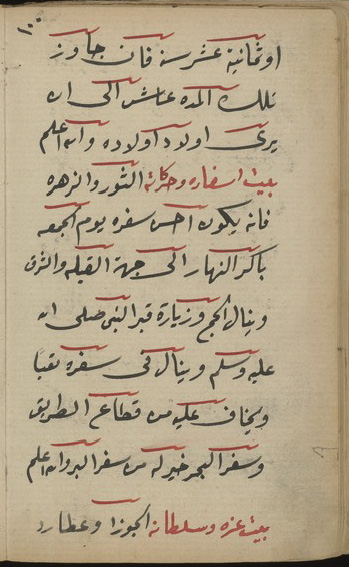 ١٠٠
او ثمانية عشر سنه فان جاوز
تلك المده عاش الى ان
يرى اولاد اولاده والله اعلم
بيت اسفاره وحركاته الثور والزهره
فانه يكون احسن سفره يوم الجمعه
باكر النهار الى جهة القبله والشرق
وينال الحج وزيارة قبر النبى صلى الله
عليه وسلم وينال فى سفره تعبا
ويخاف عليه من قطاع الطريق
وسفر البحر خير له من سفر البر والله اعلم
بيت عزه وسلطانه الجوزا وعطارد